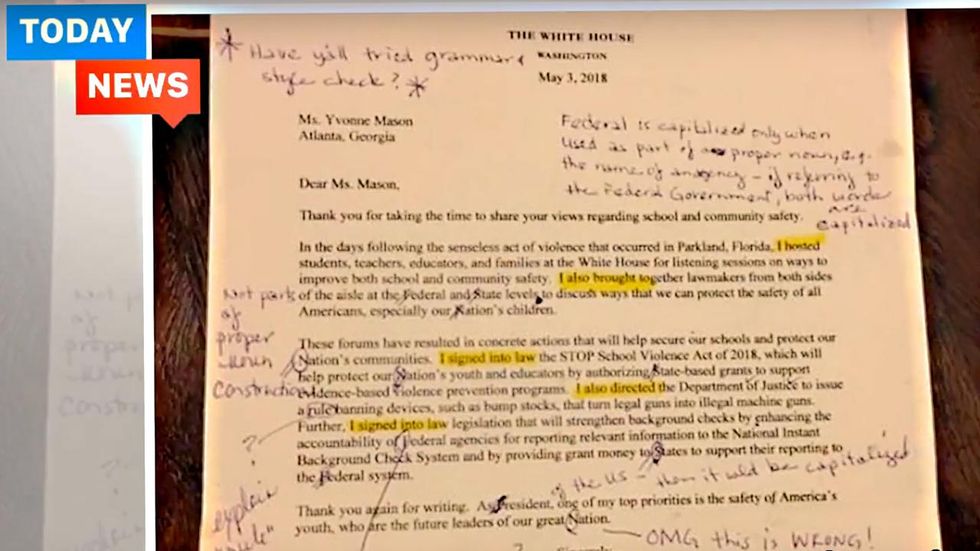 TODAY
NEWS
THE WHITE HOUSE
WASHINGTON
May 3, 2018
* Have y'all tried grammar &
style check? *
Ms. Yvonne Mason
Atlanta, Georgia
Federal is capitalized only when
used as part of proper noun, e.g.
the name of an agency - if referring to
the Federal Government, both words
are
capitalized
Dear Ms. Mason,
Thank you for taking the time to share your views regarding school and community safety.
In the days following the senseless act of violence that occurred in Parkland, Florida, I hosted
students, teachers, educators, and families at the White House for listening sessions on ways to
improve both school and community safety. I also brought together lawmakers from both sides
of the aisle at the Federal and State levels to discuss ways that we can protect the safety of all
Americans, especially our Nation's children.
Not parts
of
proper
noun
construction
These forums have resulted in concrete actions that will help secure our schools and protect our
Nation's communities. I signed into law the STOP School Violence Act of 2018, which will
help protect our Nation's youth and educators by authorizing State-based grants to support
evidence-based violence prevention programs. I also directed the Department of Justice to issue
a rule banning devices, such as bump stocks, that turn legal guns into illegal machine guns.
Further, I signed into law legislation that will strengthen background checks by enhancing the
accountability of Federal agencies for reporting relevant information to the National Instant
Background Check System and by providing grant money to States to support their reporting to
the Federal system.
?
explain
"rule"
of the US - then it would be capitalized
Thank you again for writing. As President, one of my top priorities is the safety of America's
youth, who are the future leaders of our great Nation.
OMG this is WRONG!